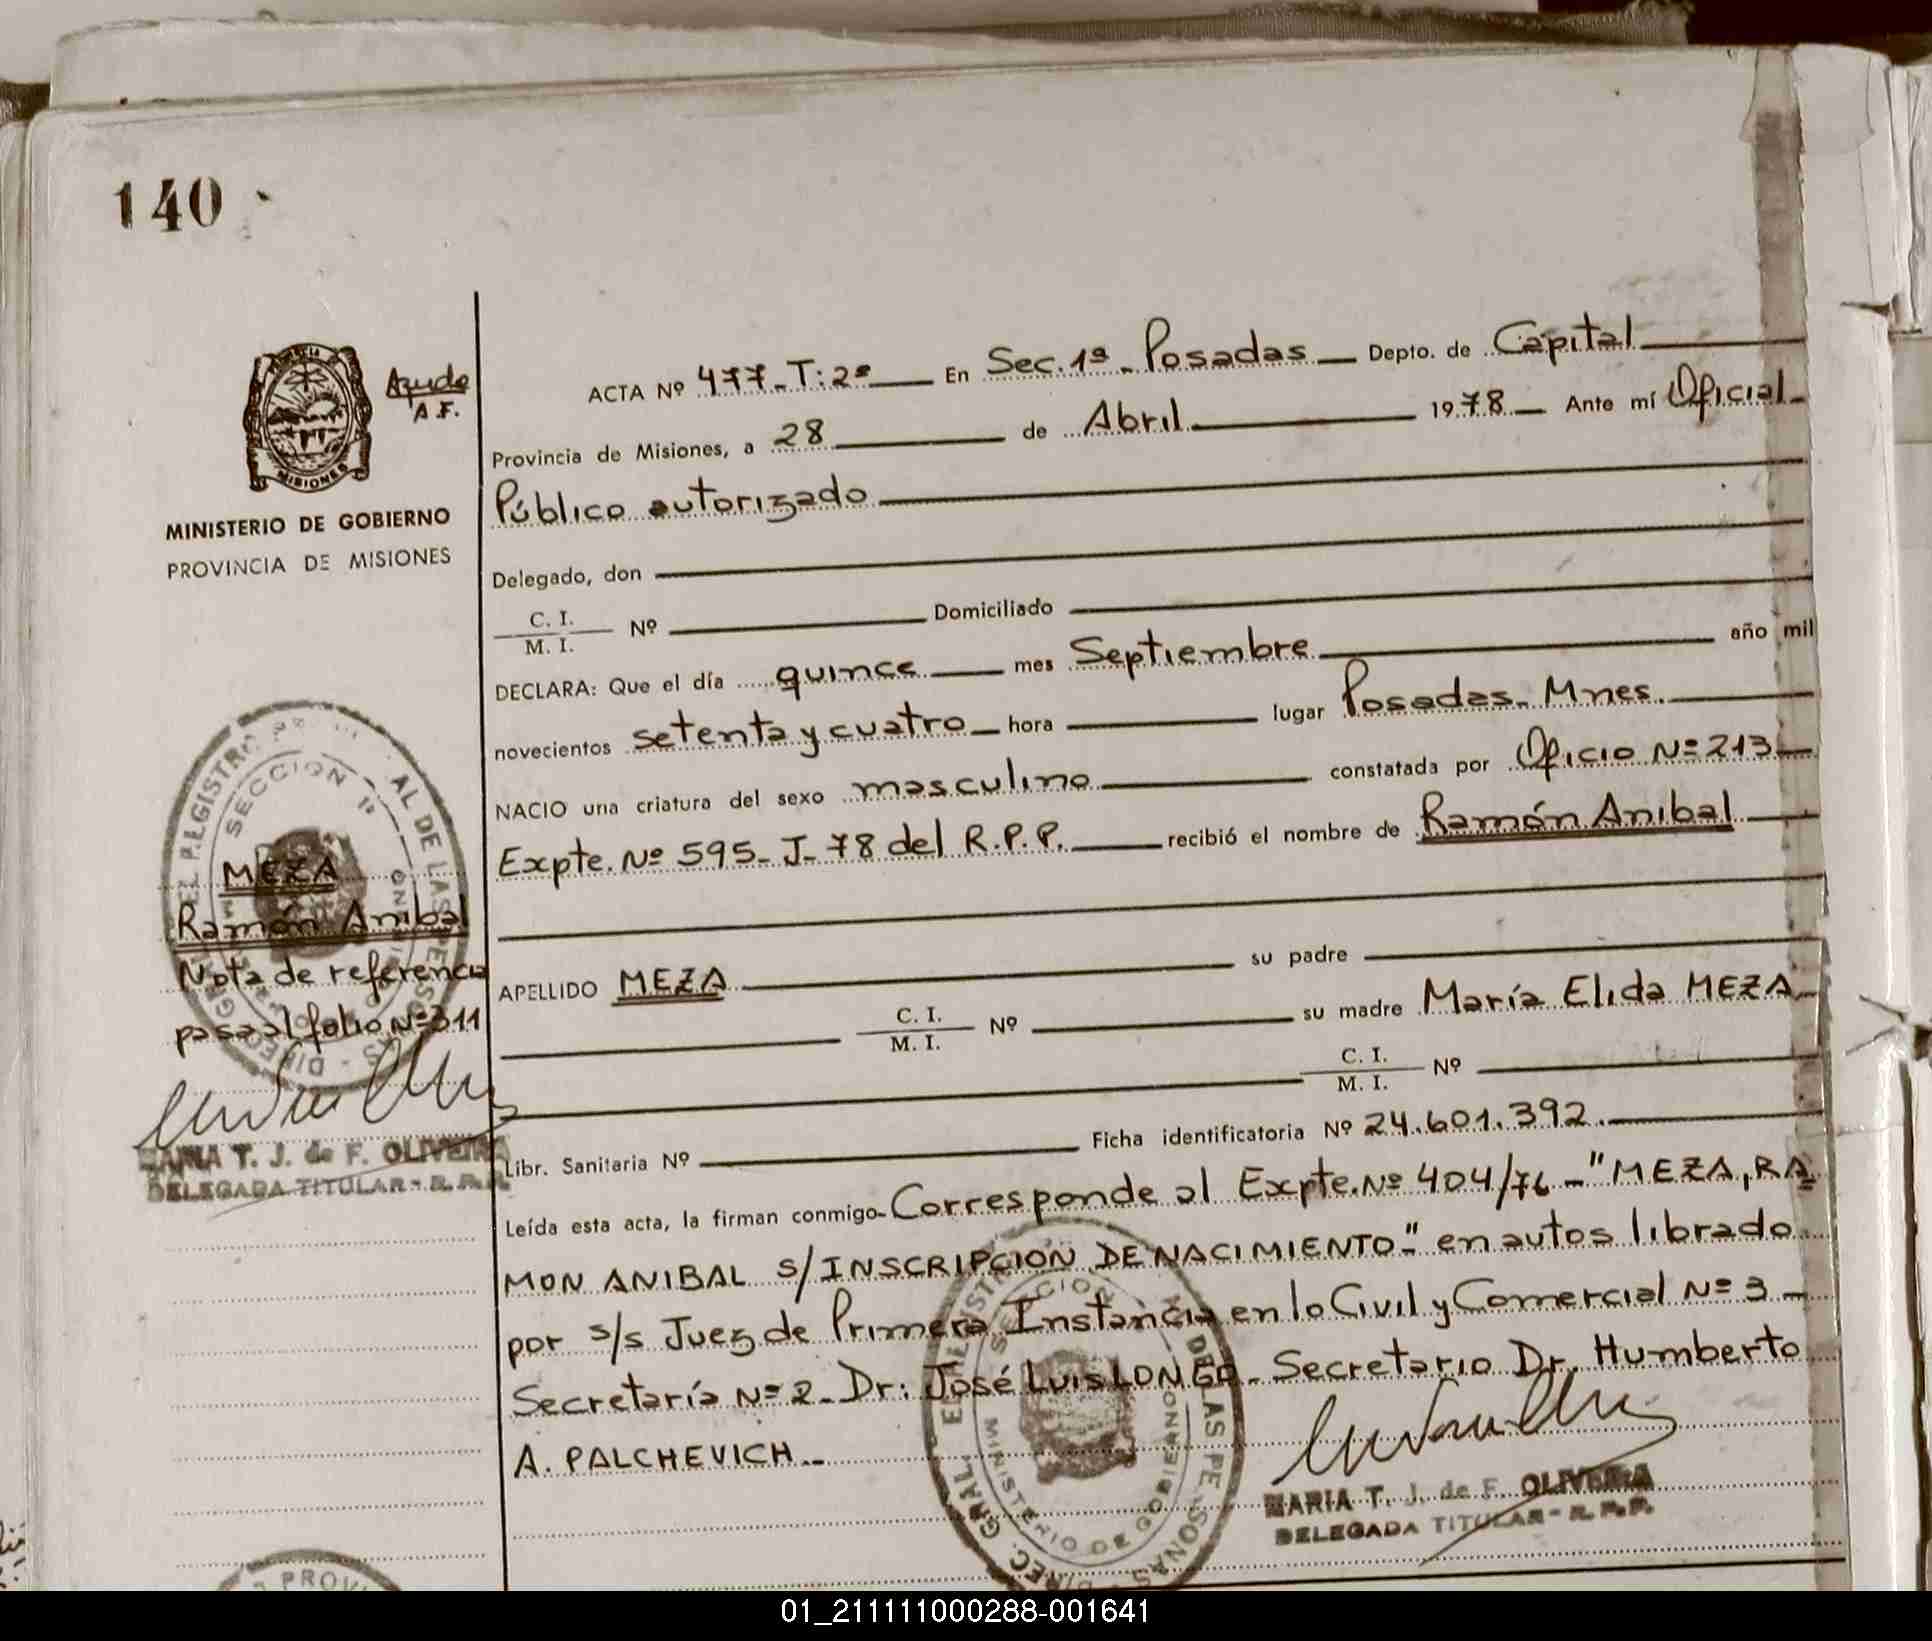 140
Ayude
A.F.
MISIONES
MINISTERIO DE GOBIERNO
PROVINCIA DE MISIONES
ACTA Nº 477-T:2º En Sec. 1ª - Posadas Depto. de Capital
Provincia de Misiones, a 28 de Abril 1978 Ante mí Oficial
Público autorizado
Delegado, don
C. I.
M. I. Nº Domiciliado
DECLARA: Que el día quince mes Septiembre año mil
novecientos setenta y cuatro hora lugar Posadas - Mnes.
NACIO una criatura del sexo masculino constatada por Oficio Nº 213
Expte. Nº 595 - J - 78 del R.P.P. recibió el nombre de Ramón Anibal
APELLIDO MEZA su padre
C. I.
M. I. Nº su madre María Elida MEZA
C. I.
M. I. Nº
Libr. Sanitaria Nº Ficha identificatoria Nº 24.601.392.
Leída esta acta, la firman conmigo - Corresponde al Expte. Nº 404/76 - "MEZA, RA
MON ANIBAL S/INSCRIPCIÓN DE NACIMIENTO" en autos librado
por s/s Juez de Primera Instancia en lo Civil y Comercial Nº 3 -
Secretaría Nº 2 - Dr: José Luis LONGO - Secretario Dr. Humberto
A. PALCHEVICH -
MARIA T. J. de F. OLIVEIRA
DELEGADA TITULAR - R. P. P.
MEZA
Ramón Anibal
Nota de referencia
pasa al folio Nº 311
MARIA T. J. de F. OLIVEIRA
DELEGADA TITULAR - R. P. P.
SECCION 1ª
AL DE LAS PERSONAS
DIREC. GRAL. DEL REGISTRO
SECCION
DE LAS PERSONAS
MINISTERIO DE GOBIERNO
PROV
01_211111000288-001641